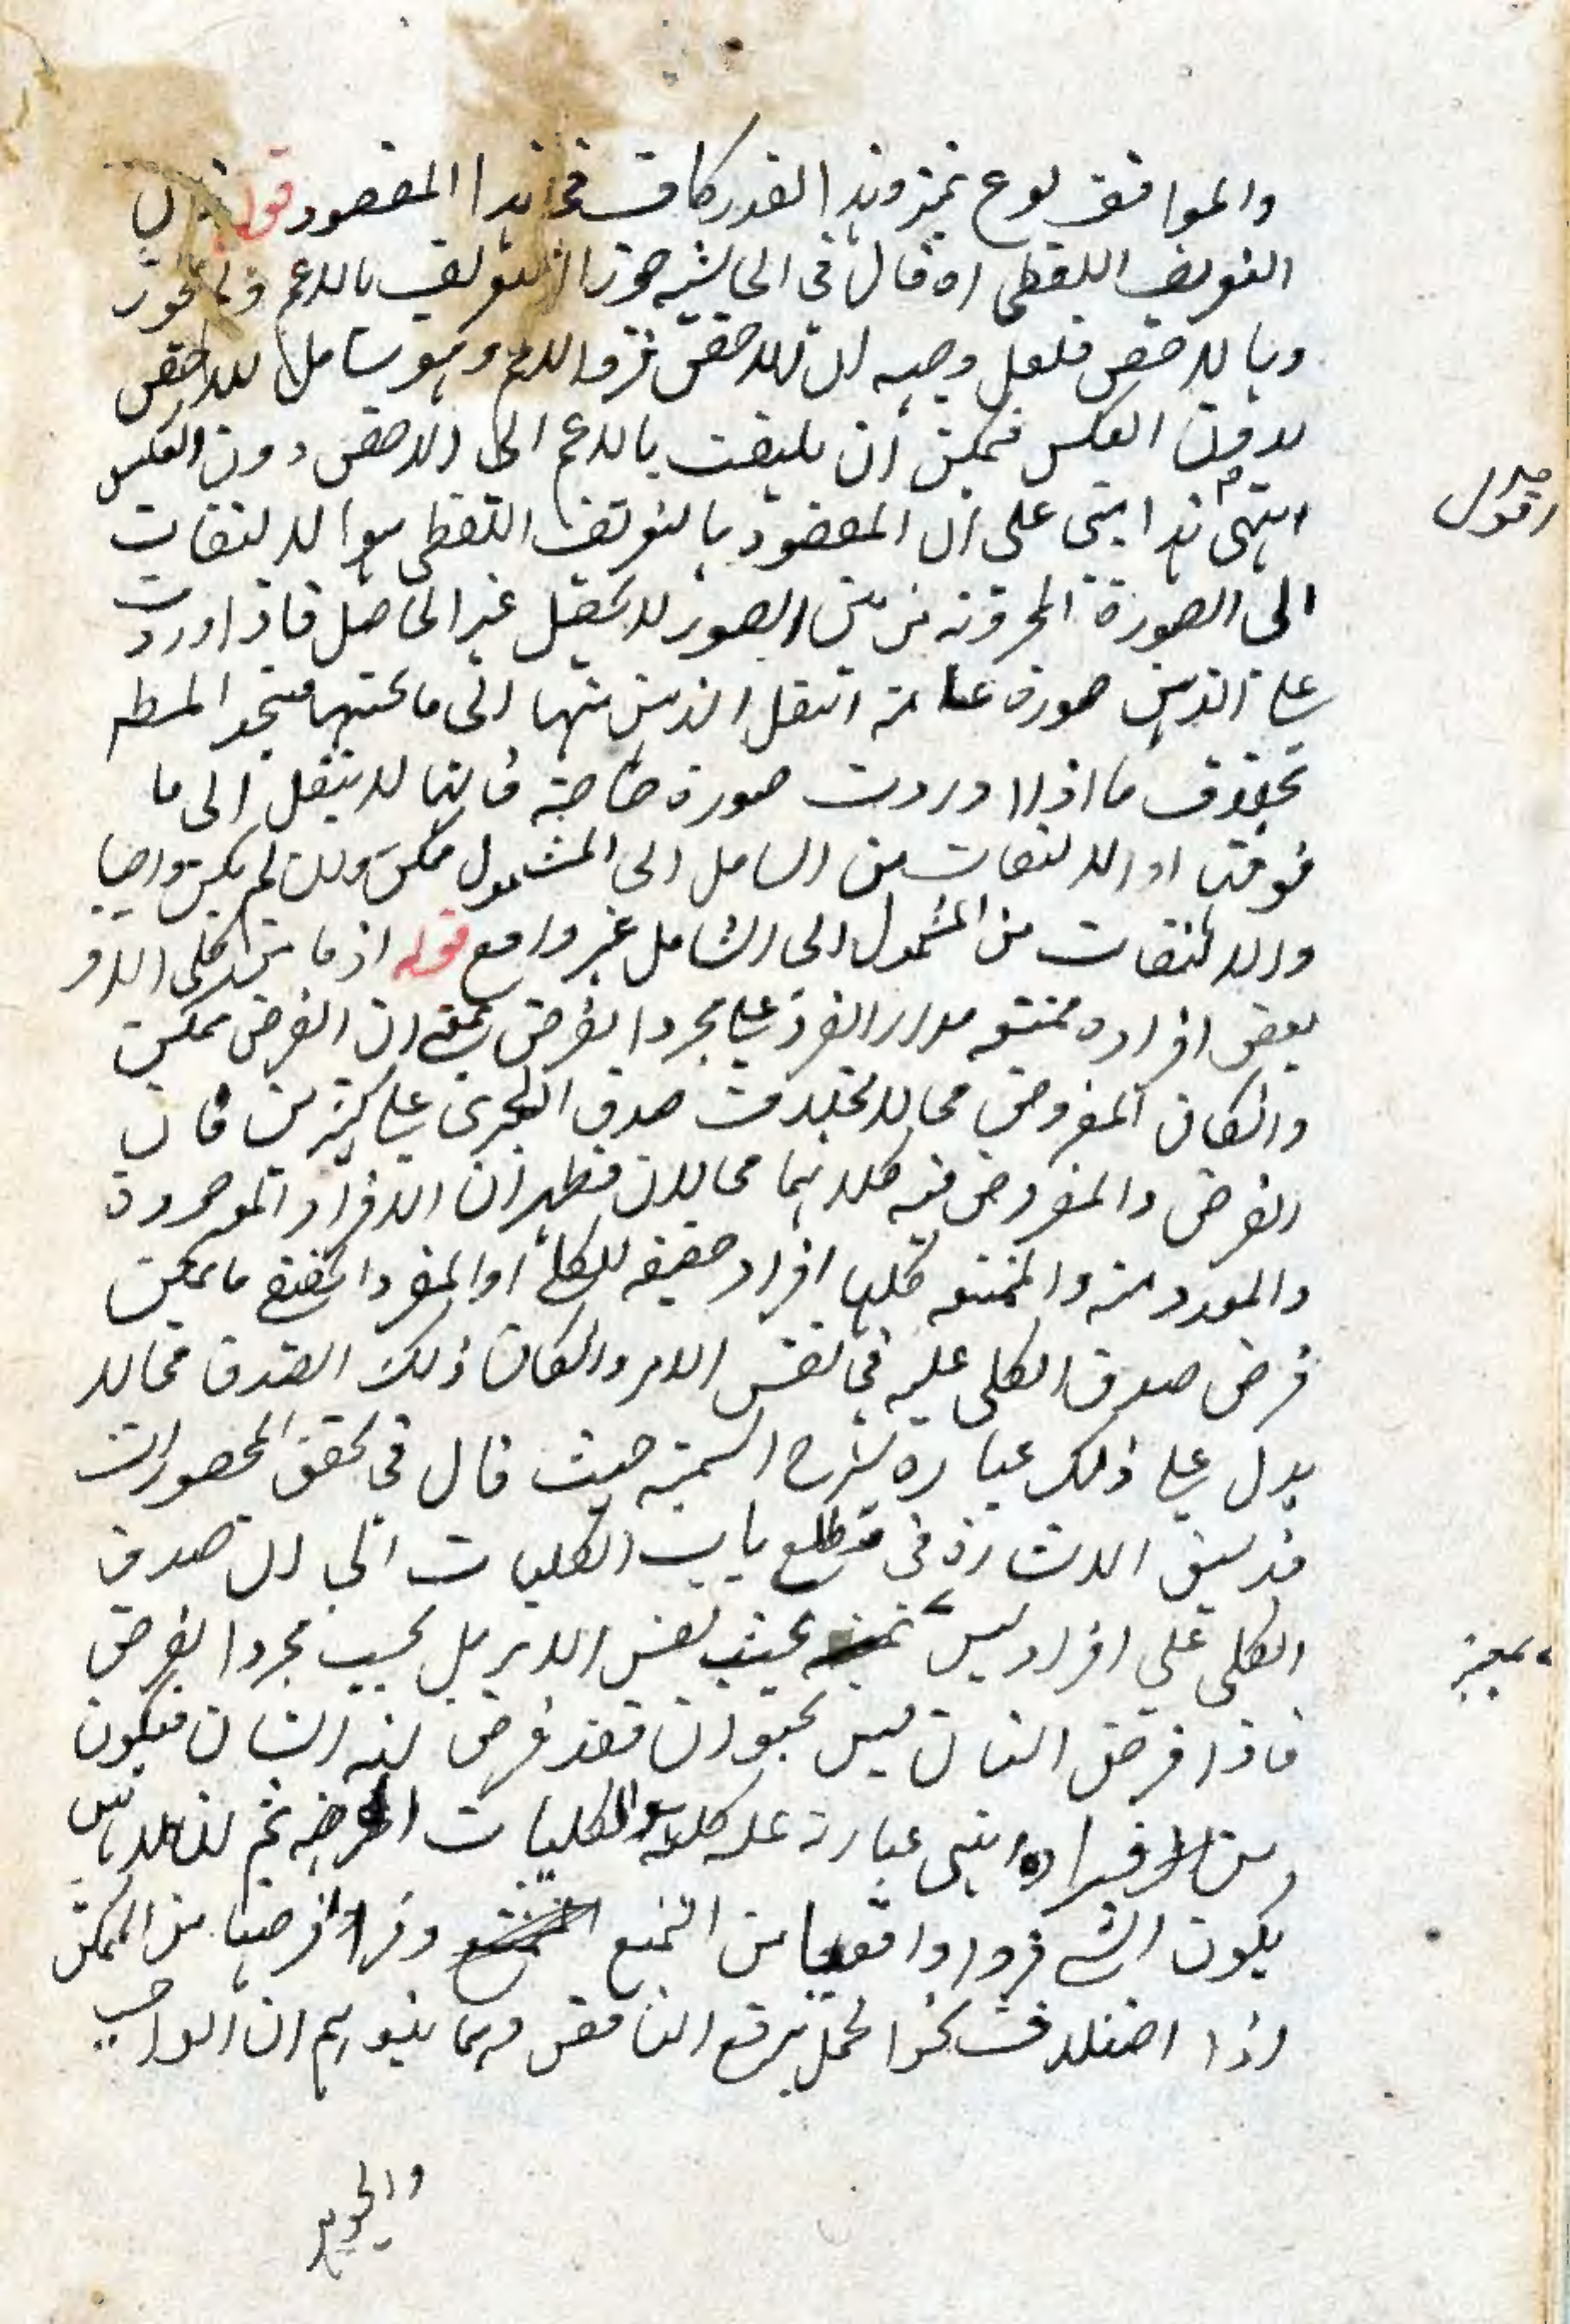 والموافق نوع تميز وهذا القدر كاف فى هذا المقصود قوله فى
التعريف اللفظى اه قال فى الحاشيه جوزوا التعريف بالاعم ولم يجوز
وبالاخص فلعل وجهه ان للاخص فرد الاعم وهو شامل للاخص
بدون العكس فيمكن ان يلتفت بالاعم الى الاخص دون العكس
انتهى هذا يبتنى على ان المقصود بالتعريف اللفظى هو الالتفات
الى الصورة المخزونه من بين الصور لا تحصيل غير الحاصل فاذا اوردت
على الذهن صورة عامة انتقل الذهن منها الى ما تحتها فيتحد المطلـ
بخلاف ما اذا اوردت صورة خاصة فانها لا ينتقل الى ما
فوقها اذ الالتفات من الشامل الى المشمول ممكن وان لم يكن واجبا
والالتفات من المشمول الى الشامل غير واقع قوله اذ ما من كلى الا و
بعض افراده ممتنعه مدار الفرد على مجرد الفرض بمعنى ان الفرض ممكن
وان كان المفروض محالا بخلاف صدق الجزئى على كثيرين فان
الفرض والمفروض فيه كلاهما محالان فظهر ان الافراد الموجودة
والمعدومة والممتنعه كلها افراد حقيقه للكلى اذ المفرد الحقيقى ما يمكن
فرض صدق الكلى عليه فى نفس الامر وان كان ذلك الصدق محالا
يدل على ذلك عبارة شرح الشمسيه حيث قال فى تحقيق المحصورات
قد سبق الاشارة فى مطلع باب الكليات الى ان صدق
الكلى على افراد ليس بحسب نفس الامر بل بحسب مجرد الفرض
فاذا فرض انسان ليس بحيوان فقد فرض انه انسان فيكون
من افراده انتهى عبارته
يكون الشى فردا واقعيا من الممتنع وفردا فرضيا من الممكن
اذا اختلاف نحو الحمل يرفع التناقض وبما يتوهم ان الواجب
والجزئى
اقول
بمعتبر